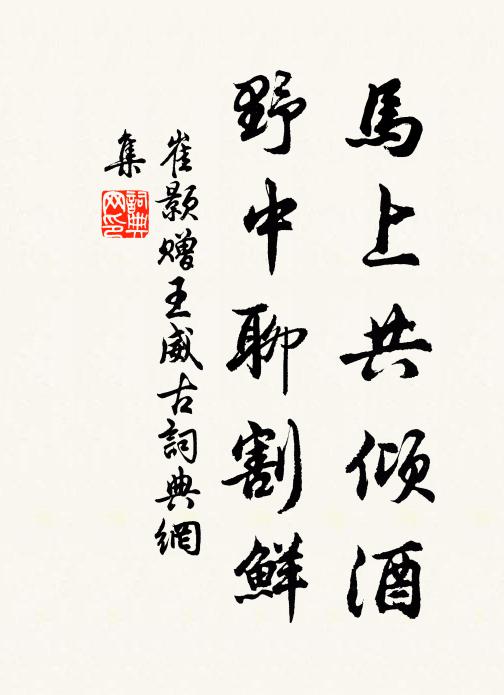 馬上共傾酒
野中聊割鮮
崔顥贈王威古詞典網
集
詞典
网印